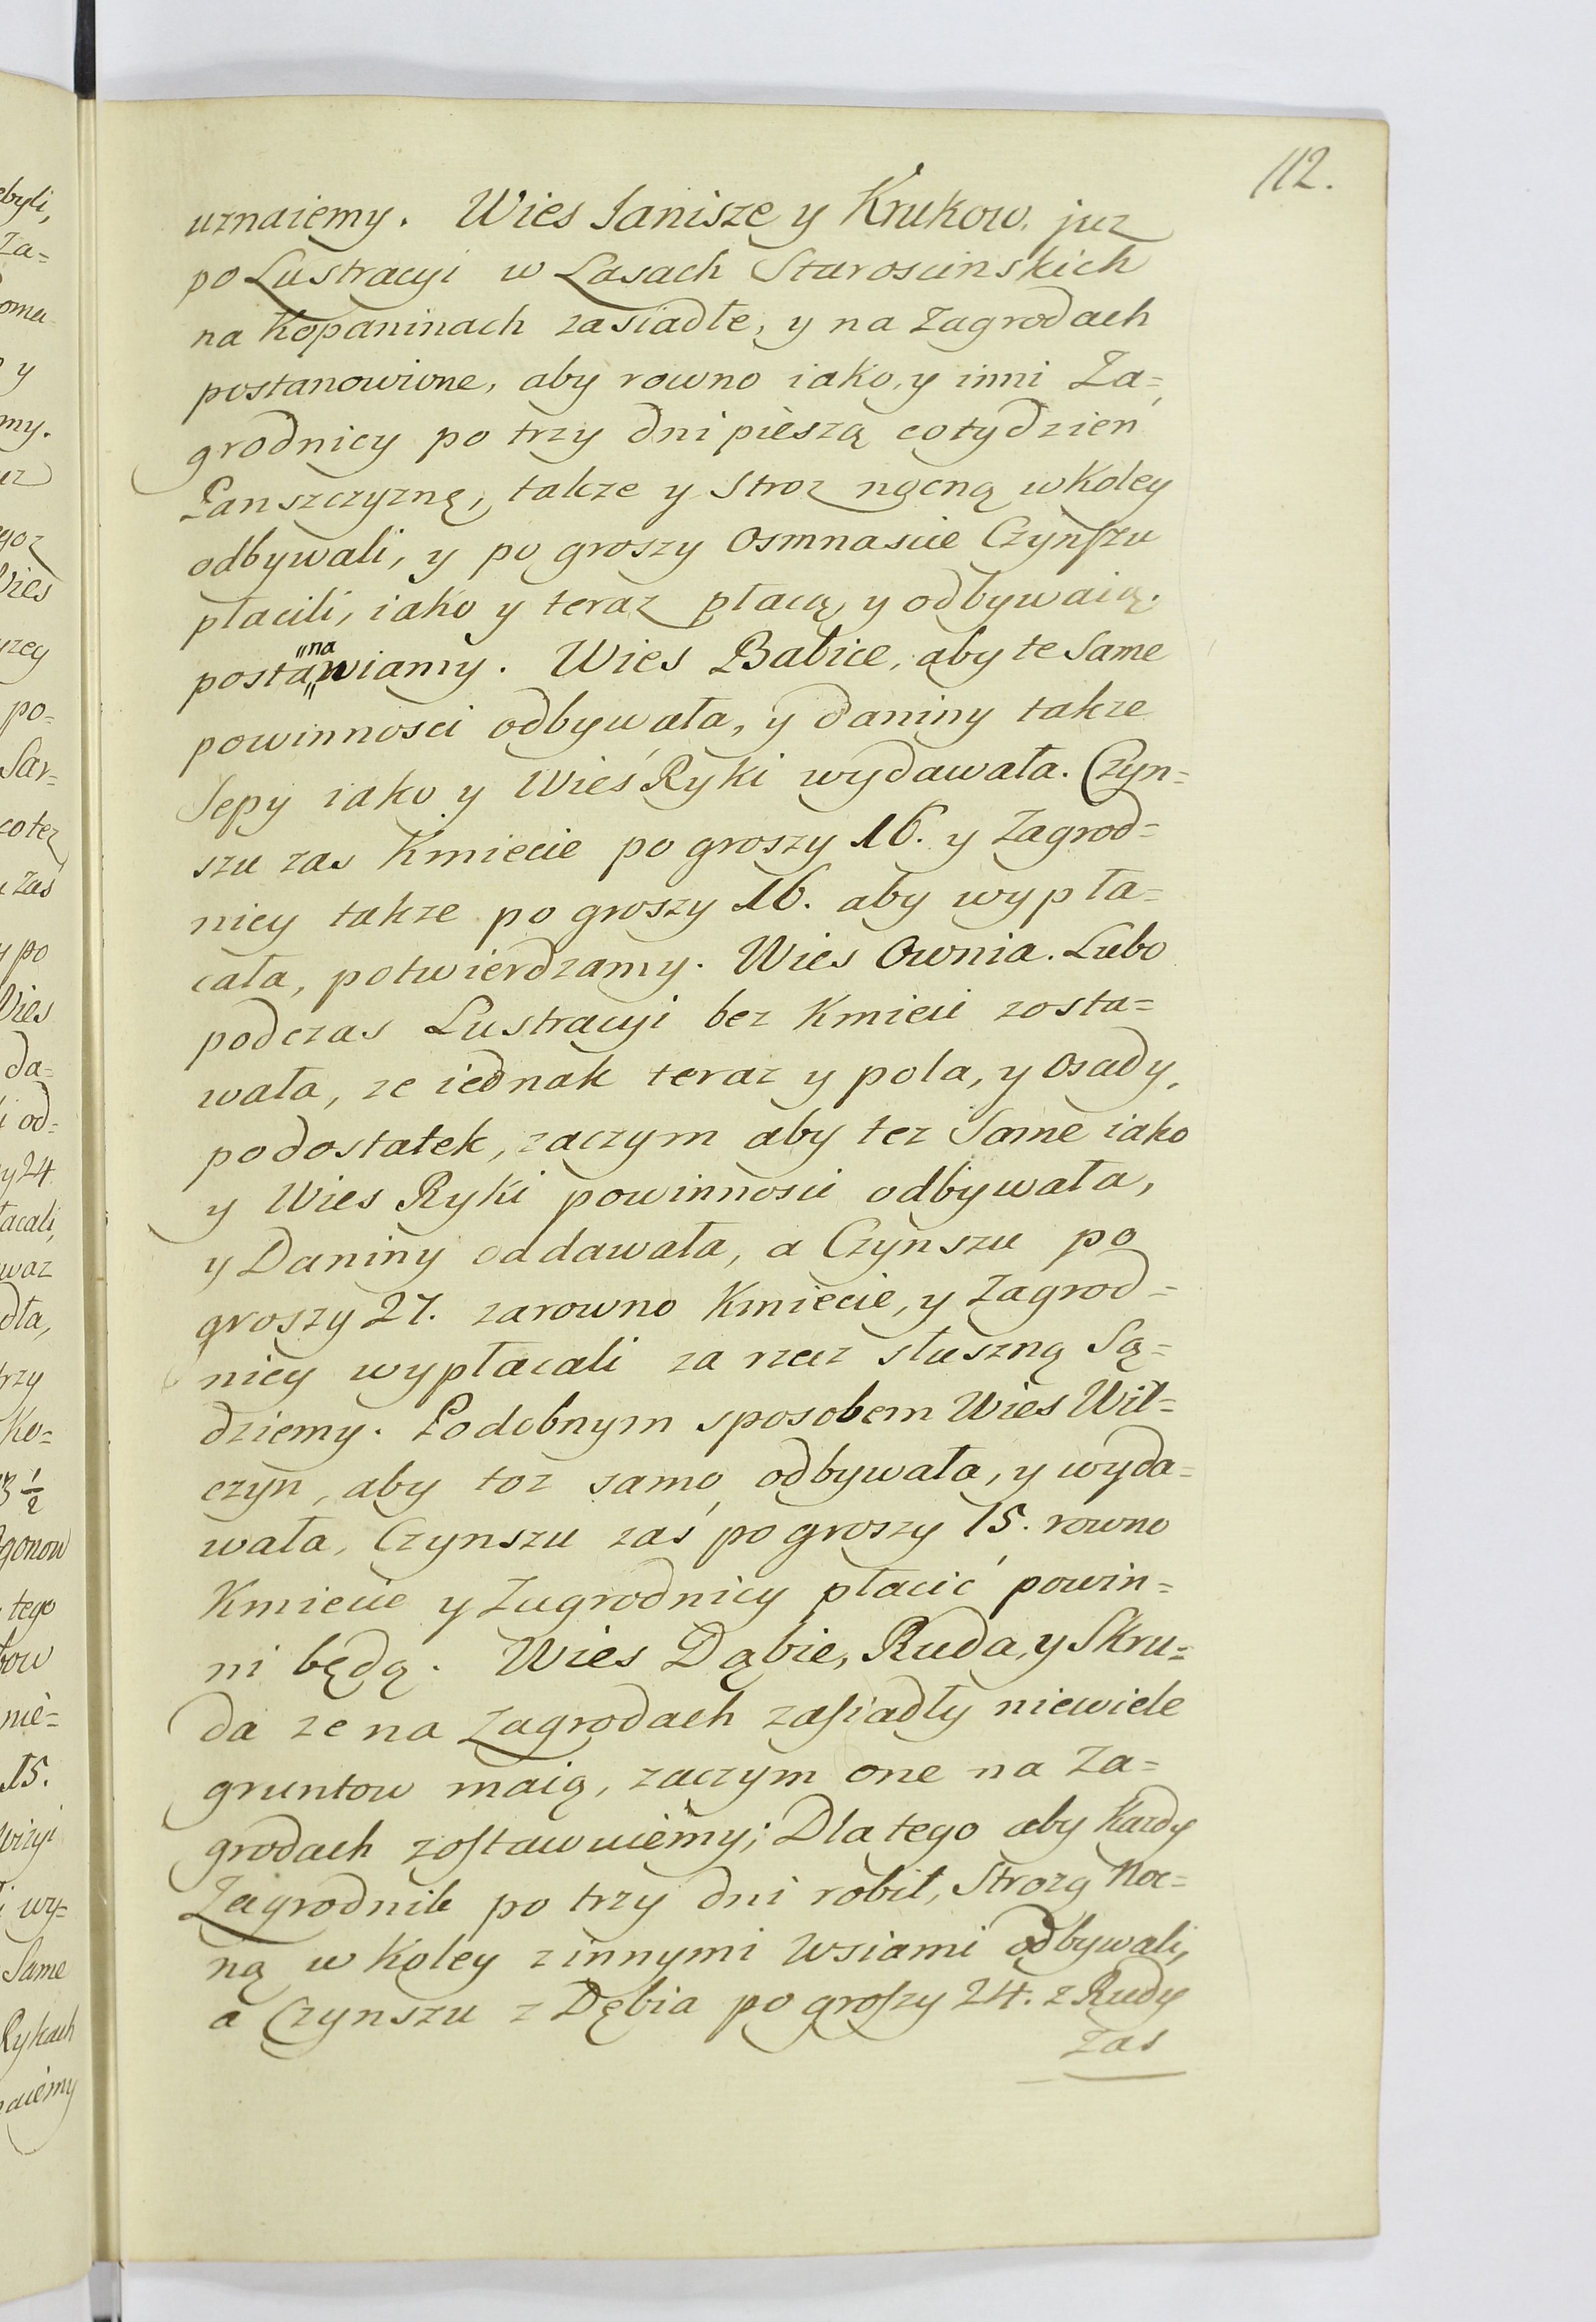 112.
uznaiemy. Wies Janisze y Krukow, juz
po Lustracyi w Lasach Staroscinskich
na Kopaninach zasiadłe, y na Zagrodach
postanowione, aby rowno iako, y inni Za=
grodnicy po trzy dni pieszą cotydzień
Panszczyznę, takze y Stroz nocną w Koley
odbywali, y po groszy Osmnascie Czynszu
płacili, iako y teraz płacą, y odbywaią.
"na
postawiamy. Wies Babice, aby te Same
powinnosci odbywała, y daniny takze
Sepy iako y Wieś Ryki wydawała. Czyn=
szu zas Kmiecie po groszy 16. y Zagrod=
nicy takze po groszy 16. aby wypła=
cała, potwierdzamy. Wies Ownia. Lubo
podczas Lustracyi bez Kmieci zosta=
wała, ze iednak teraz y pola, y Osady,
podostatek, zaczym aby tez Same iako
y Wies Ryki powinnosci odbywała,
y Daniny oddawała, a Czynszu po
groszy 27. zarowno Kmiecie, y Zagrod=
nicy wypłacali za rzecz słuszną Są=
dziemy. Podobnym sposobem Wies Wil=
czyn, aby toz samo odbywała, y wyda=
wała, Czynszu zaś po groszy 15. rowno
Kmiecie y Zagrodnicy płacić powin=
ni będą. Wies Dąbie, Ruda, y Skru=
da ze na Zagrodach zasiadły niewiele
gruntow maią, zaczym one na Za=
grodach zostawuiemy; Dla tego aby Kazdy
Zagrodnik po trzy dni robił, Strozą Noc=
ną w Koley z innymi Wsiami odbywali,
a Czynszu z Dębia po groszy 24. z Rudy
zas
ebyli,
Za=
y
my.
Wies
po=
Sar=
co tez
zas
y po
Wies
da=
i od=
y 24
łacali,
waz
dła,
trzy
Ko=
3 1/2
gonow
tego
nie=
15.
i wy=
Same
Rykach
naiemy